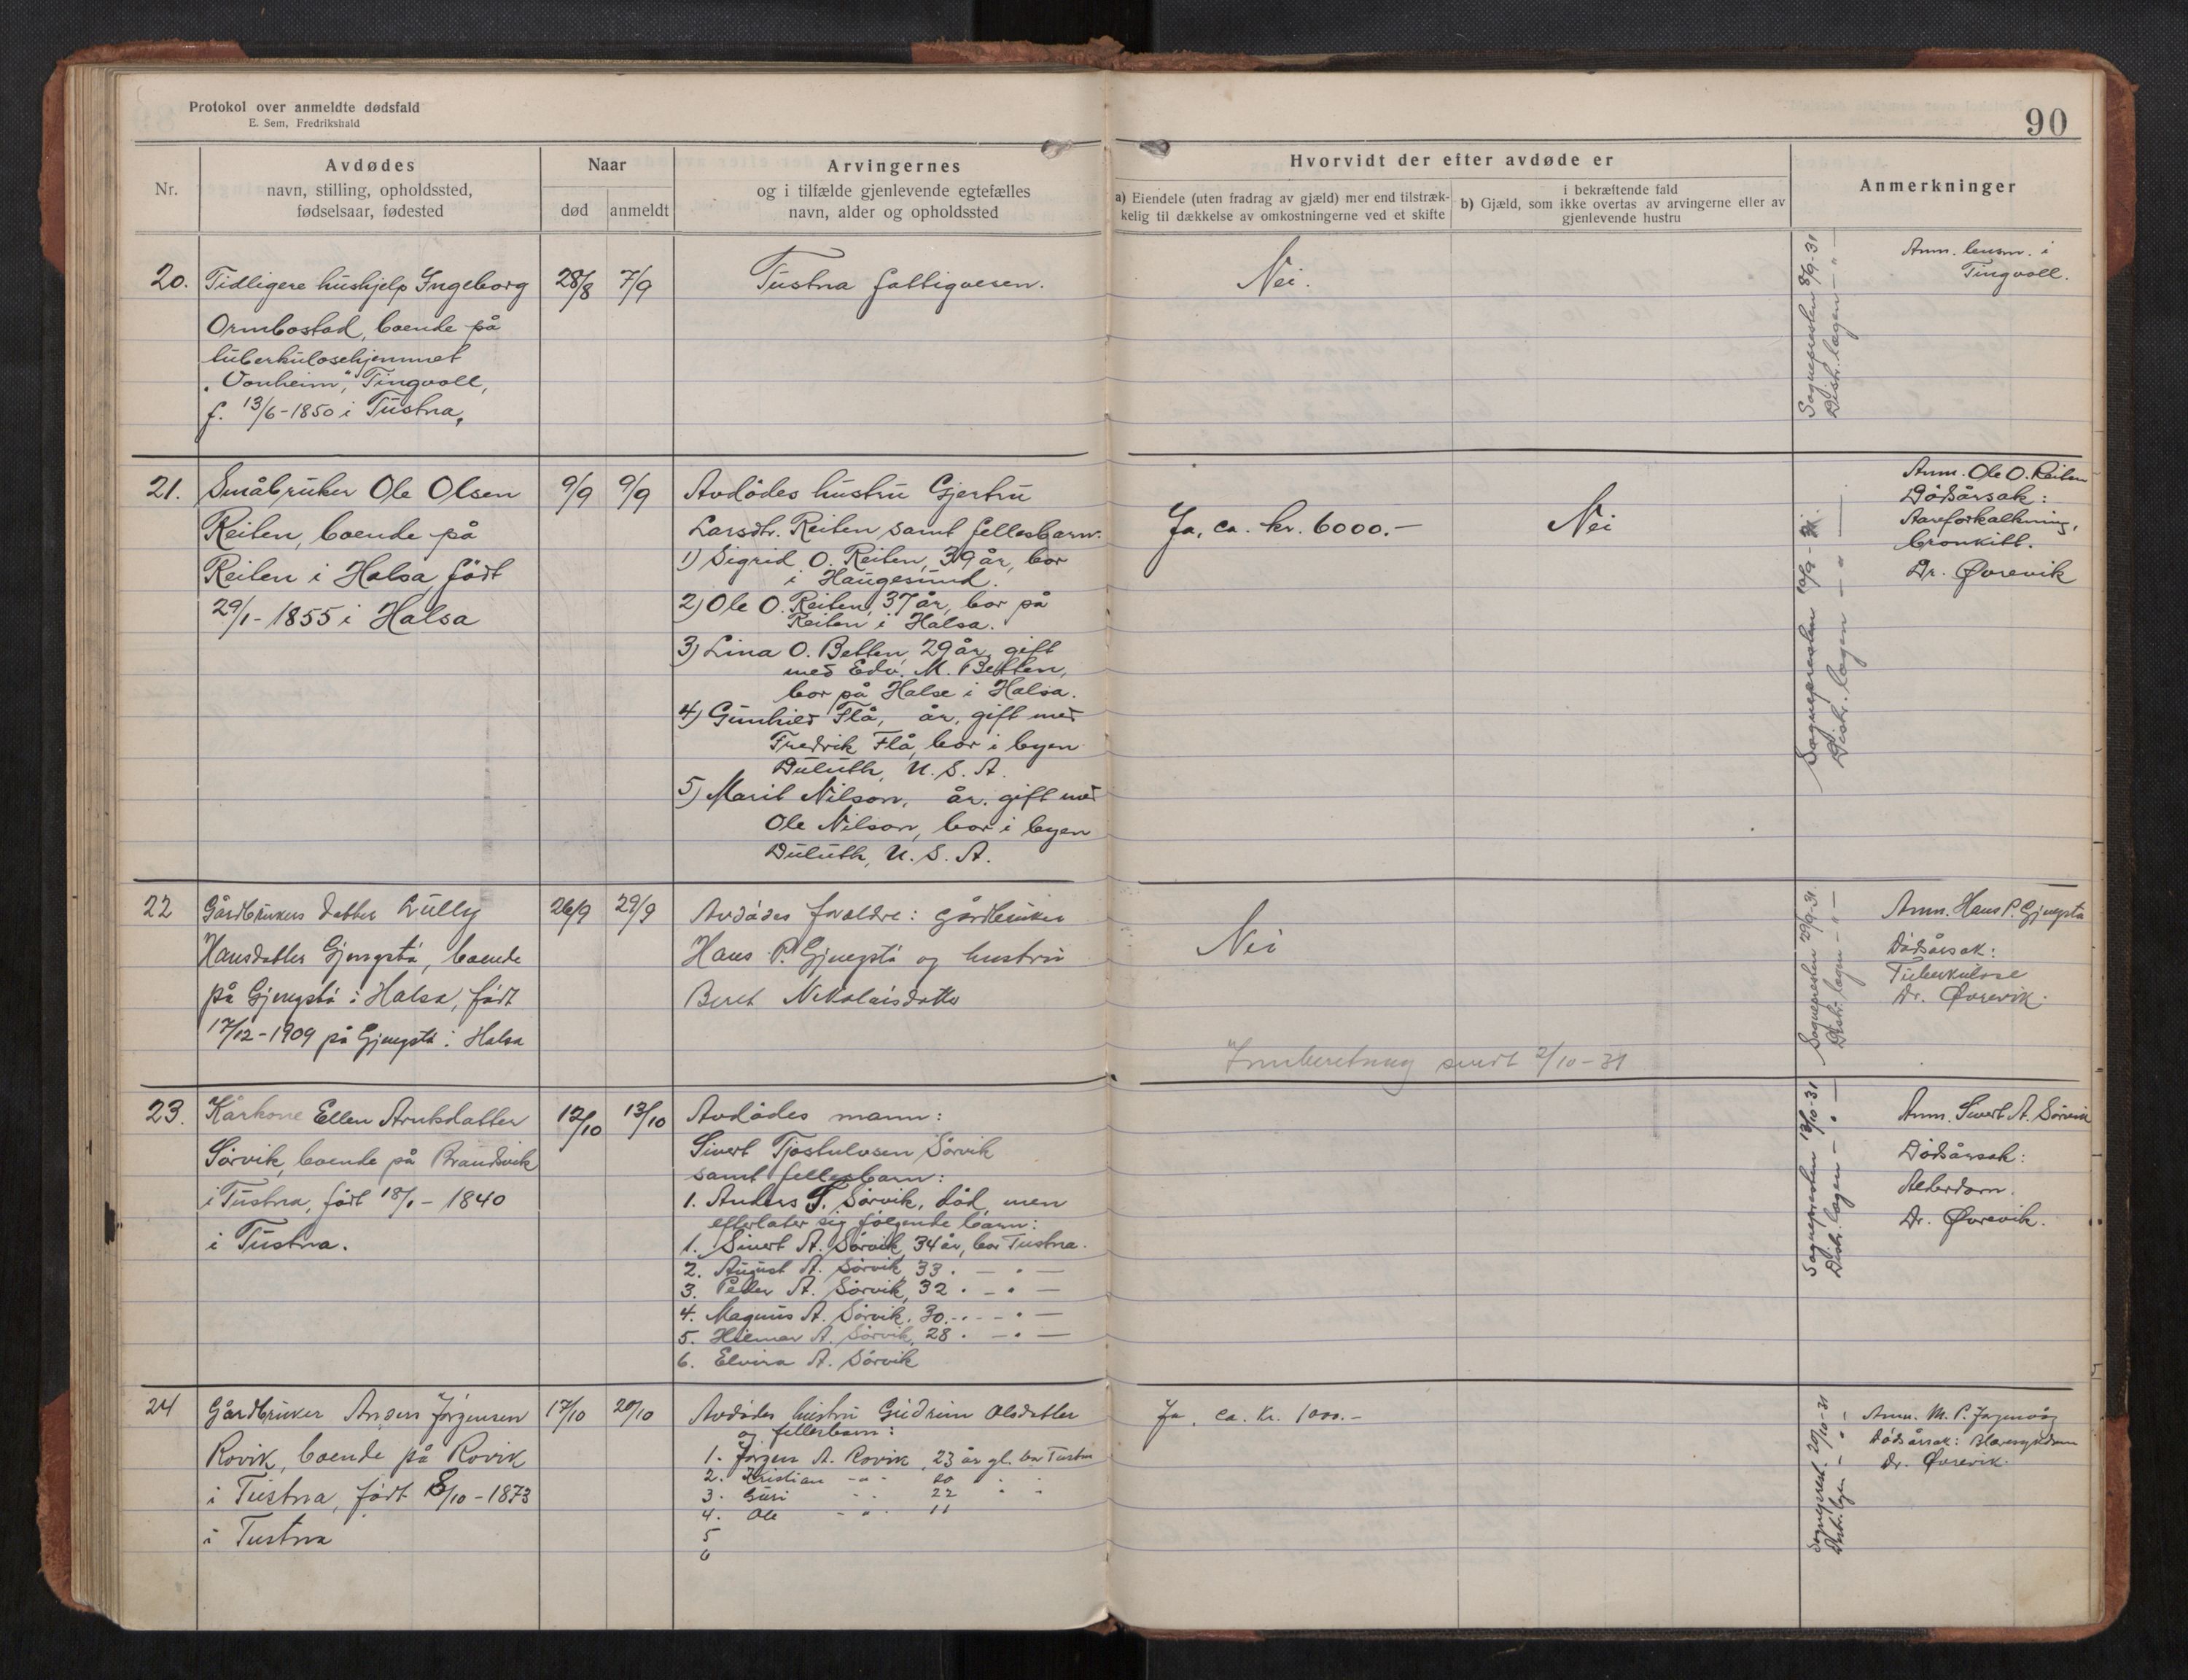 Protokol over anmeldte dødsfald
E. Sem, Fredrikshald
90
Nr.
Avdødes
navn, stilling, opholdssted,
fødselsaar, fødested
Naar
død
anmeldt
Arvingernes
og i tilfælde gjenlevende egtefælles
navn, alder og opholdssted
Hvorvidt der efter avdøde er
a) Eiendele (uten fradrag av gjæld) mer end tilstræk-
kelig til dækkelse av omkostningerne ved et skifte
i bekræftende fald
b) Gjæld, som ikke overtas av arvingerne eller av
gjenlevende hustru
Anmerkninger
20.
Tidligere hushjelp Ingeborg
Ormbostad, boende på
tuberkulosehjemmet
"Vonheim", Tingvoll,
f. 13/6-1850 i Tustna.
28/8
7/9
Tustna fattigvesen.
Nei.
Sognepresten 8/9-31
Distr. lagen - " -
Anm. lensm. i
Tingvoll.
21.
Småbruker Ole Olsen
Reiten, boende på
Reiten i Halsa, født
29/1-1855 i Halsa
9/9
9/9
Avdødes hustru Gjertru
Larsdtr. Reiten samt fellesbarn:
1) Sigrid O. Reiten, 39 år, bor
i Haugesund.
2) Ole O. Reiten, 37 år, bor på
Reiten i Halsa.
3) Lina O. Betten, 29 år, gift
med Edv. M. Betten,
bor på Halse i Halsa.
4) Gunhild Flå, år, gift med
Fredrik Flå, bor i byen
Duluth, U.S.A.
5) Marit Nilson, år, gift med
Ole Nilson, bor i byen
Duluth, U.S.A.
Ja, ca. kr. 6000.-
Nei
Sognepresten 9/9-31.
Distr. lagen - " -
Anm. Ole O. Reiten
Dødsårsak:
Aareforkalkning,
bronkitt.
Dr. Øvrevik
22
Gårdbrukers datter Lully
Hansdatter Gjengstø, boende
på Gjengstø i Halsa, født
17/12-1909 på Gjengstø i Halsa
26/9
29/9
Avdødes foreldre: gårdbruker
Hans P. Gjengstø og hustru
Beret Nikolaisdatter
Nei
Innberetning sendt 2/10-31
Sognepresten 29/9-31.
Distr. lagen - " -
Anm. Hans P. Gjengstø
Dødsårsak:
Tuberkulose
Dr. Øvrevik.
23.
Kårkone Ellen Arntsdatter
Sørvik, boende på Brandsvik
i Tustna, født 18/1-1840
i Tustna.
12/10
13/10
Avdødes mann:
Sivert Tjostulvsen Sørvik
samt fellesbarn:
1. Anders S. Sørvik, død, men
etterlater sig følgende barn:
1. Sivert A. Sørvik, 34 år, bor Tustna.
2. August A. Sørvik, 33 . - " -
3. Peder A. Sørvik, 32 . - " -
4. Magnus A. Sørvik, 30 . - " -
5. Hilmar A. Sørvik, 28 . - " -
6. Elvira A. Sørvik
Sognepresten 13/10-31
Distr. lagen - " -
Anm. Sivert A. Sørvik
Dødsårsak:
Alderdom.
Dr. Øvrevik.
24
Gårdbruker Anders Jørgensen
Rovik, boende på Rovik
i Tustna, født 8/10-1873
i Tustna
17/10
20/10
Avdødes hustru Gudrun Olsdatter
og fellesbarn:
1. Jørgen A. Rovik, 23 år gl. bor Tustna
2. Kristian - " - 20 " "
3. Guri - " - 22 " "
4. Ole - " - 11
5
6
Ja, ca. kr. 1000.-
Sogneprest. 20/10-31
Distr. lagen - " -
Dødsårsak:
Dr. Øvrevik.